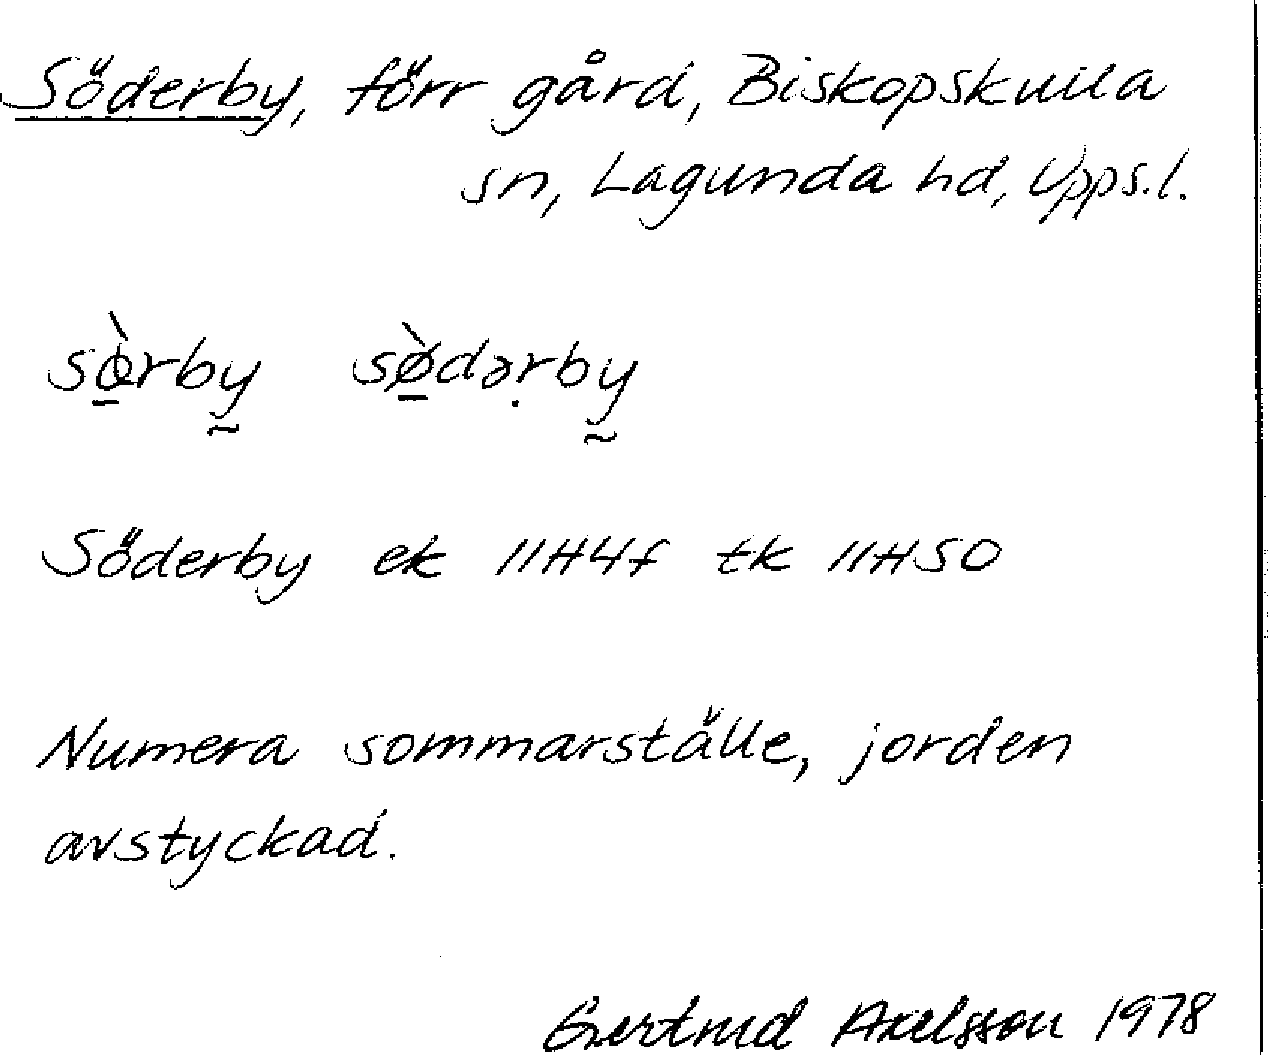 Söderby, förr gård, Biskopskulla
sn, Lagunda hd, Upps.l.
sø̠̀rby̰ sø̠̀dəṛby̰
Söderby ek 11H4f tk 11H50
Numera sommarställe, jorden
avstyckad.
Gertrud Axelsson 1978